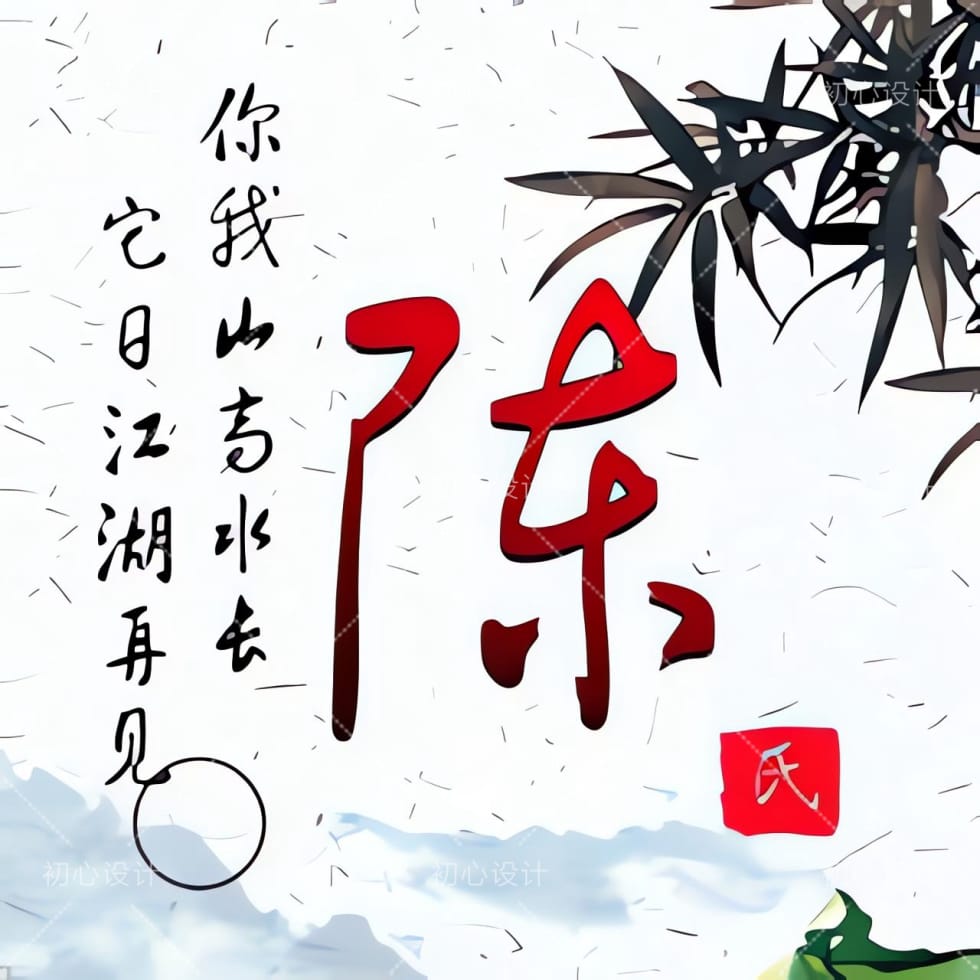 你我山高水去
它日江湖再见
陈
氏
初心设计
初心设计
初心设计